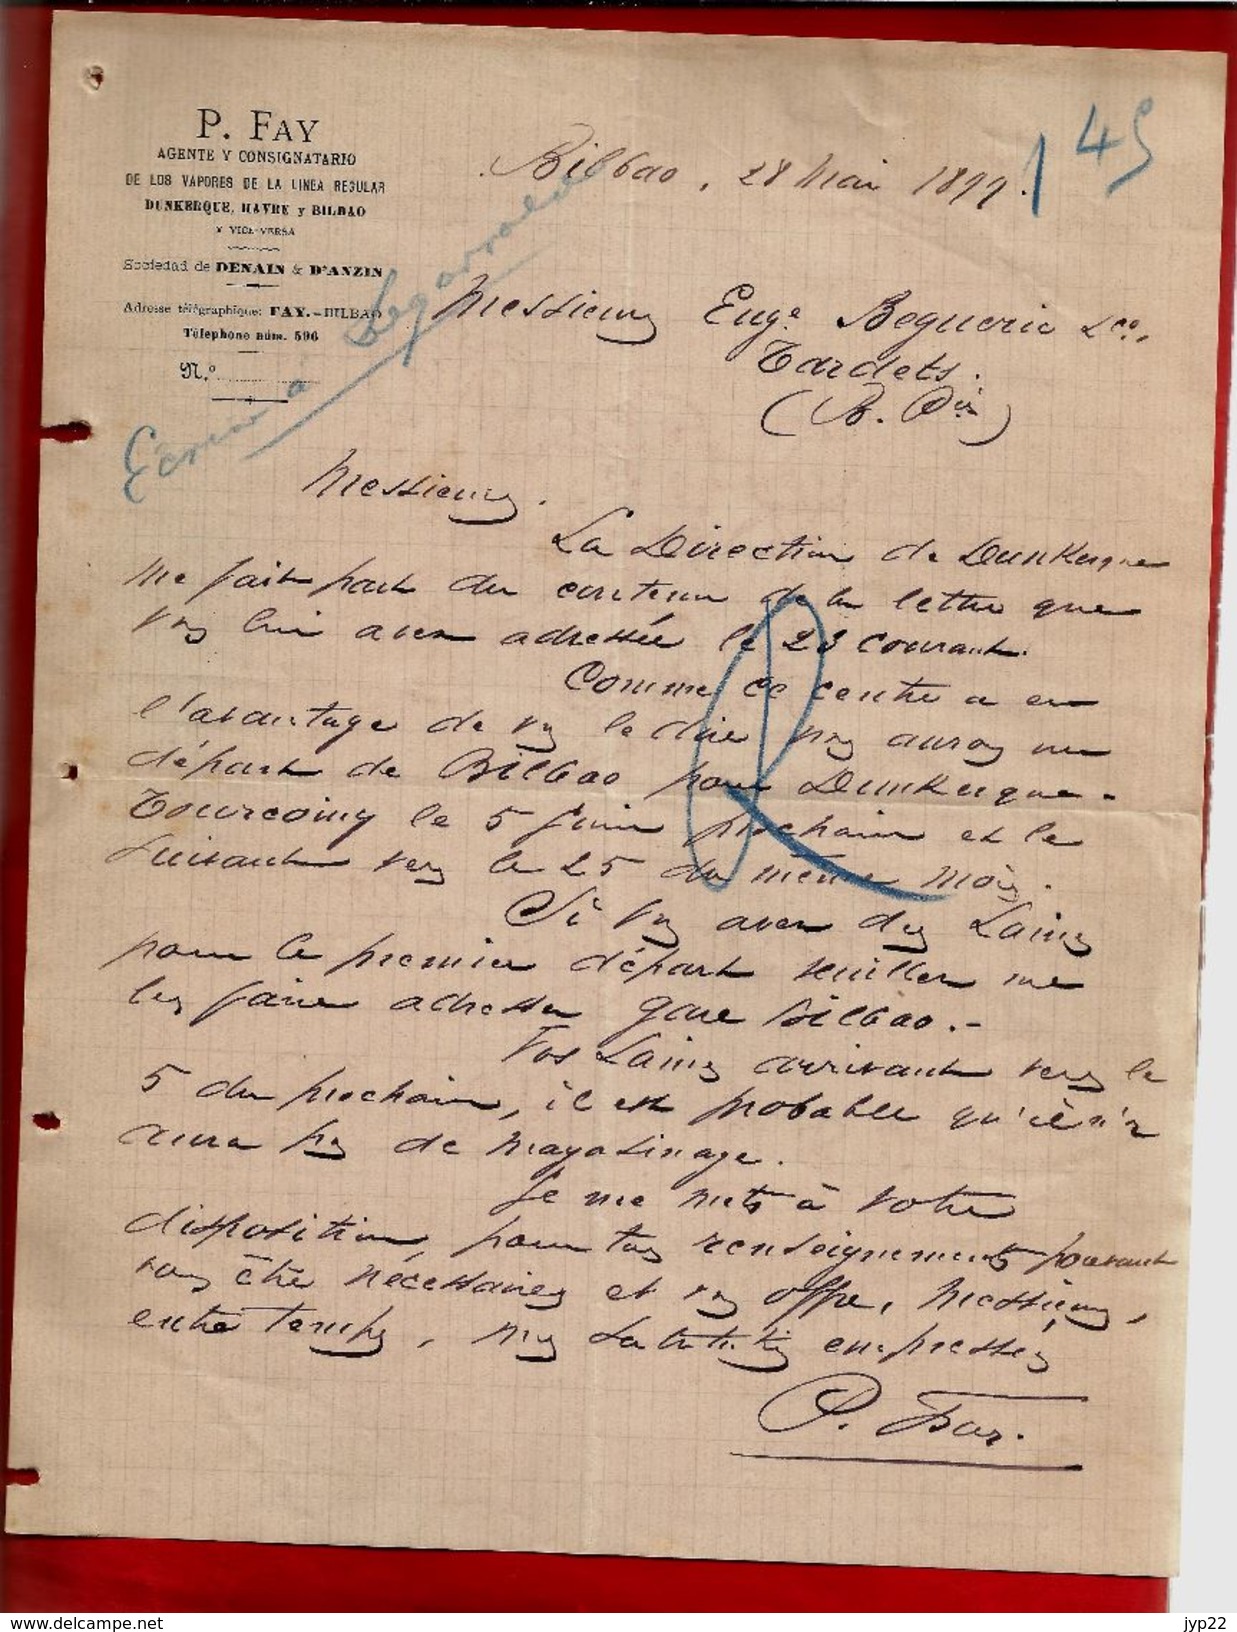 P. FAY
AGENTE Y CONSIGNATARIO
DE LOS VAPORES DE LA LINEA REGULAR
DUNKERQUE, HAVRE y BILBAO
Y VICE-VERSA
Sociedad de DENAIN & D'ANZIN
Adresse télégraphique: FAY.-BILBAO
Téléphone núm. 596
N.º
Bilbao, 28 Mai 1899.
145
Écrire à
Messieurs Eugº Beguerie & Cº,
Tardets.
(B. Pées)
Messieurs.
La Direction de Dunkerque
me fait part du contenu de la lettre que
vous lui avez adressée le 23 courant.
Comme ce centre a eu
l'avantage de vous le dire vous aurez un
départ de Bilbao pour Dunkerque-
Tourcoing le 5 Juin prochain et le
suivant vers le 25 du même mois.
Si vous avez des Laines
pour le premier départ veuillez me
les faire adresser gare Bilbao.-
Vos Laines arrivant vers le
5 du prochain, il est probable qu'il n'y
aura pas de magasinage.
Je me mets à votre
disposition, pour tous renseignements pouvant
vous être nécessaires et vous offre, Messieurs,
entre temps, mes salutations empressées
P. Fay.
jyp22